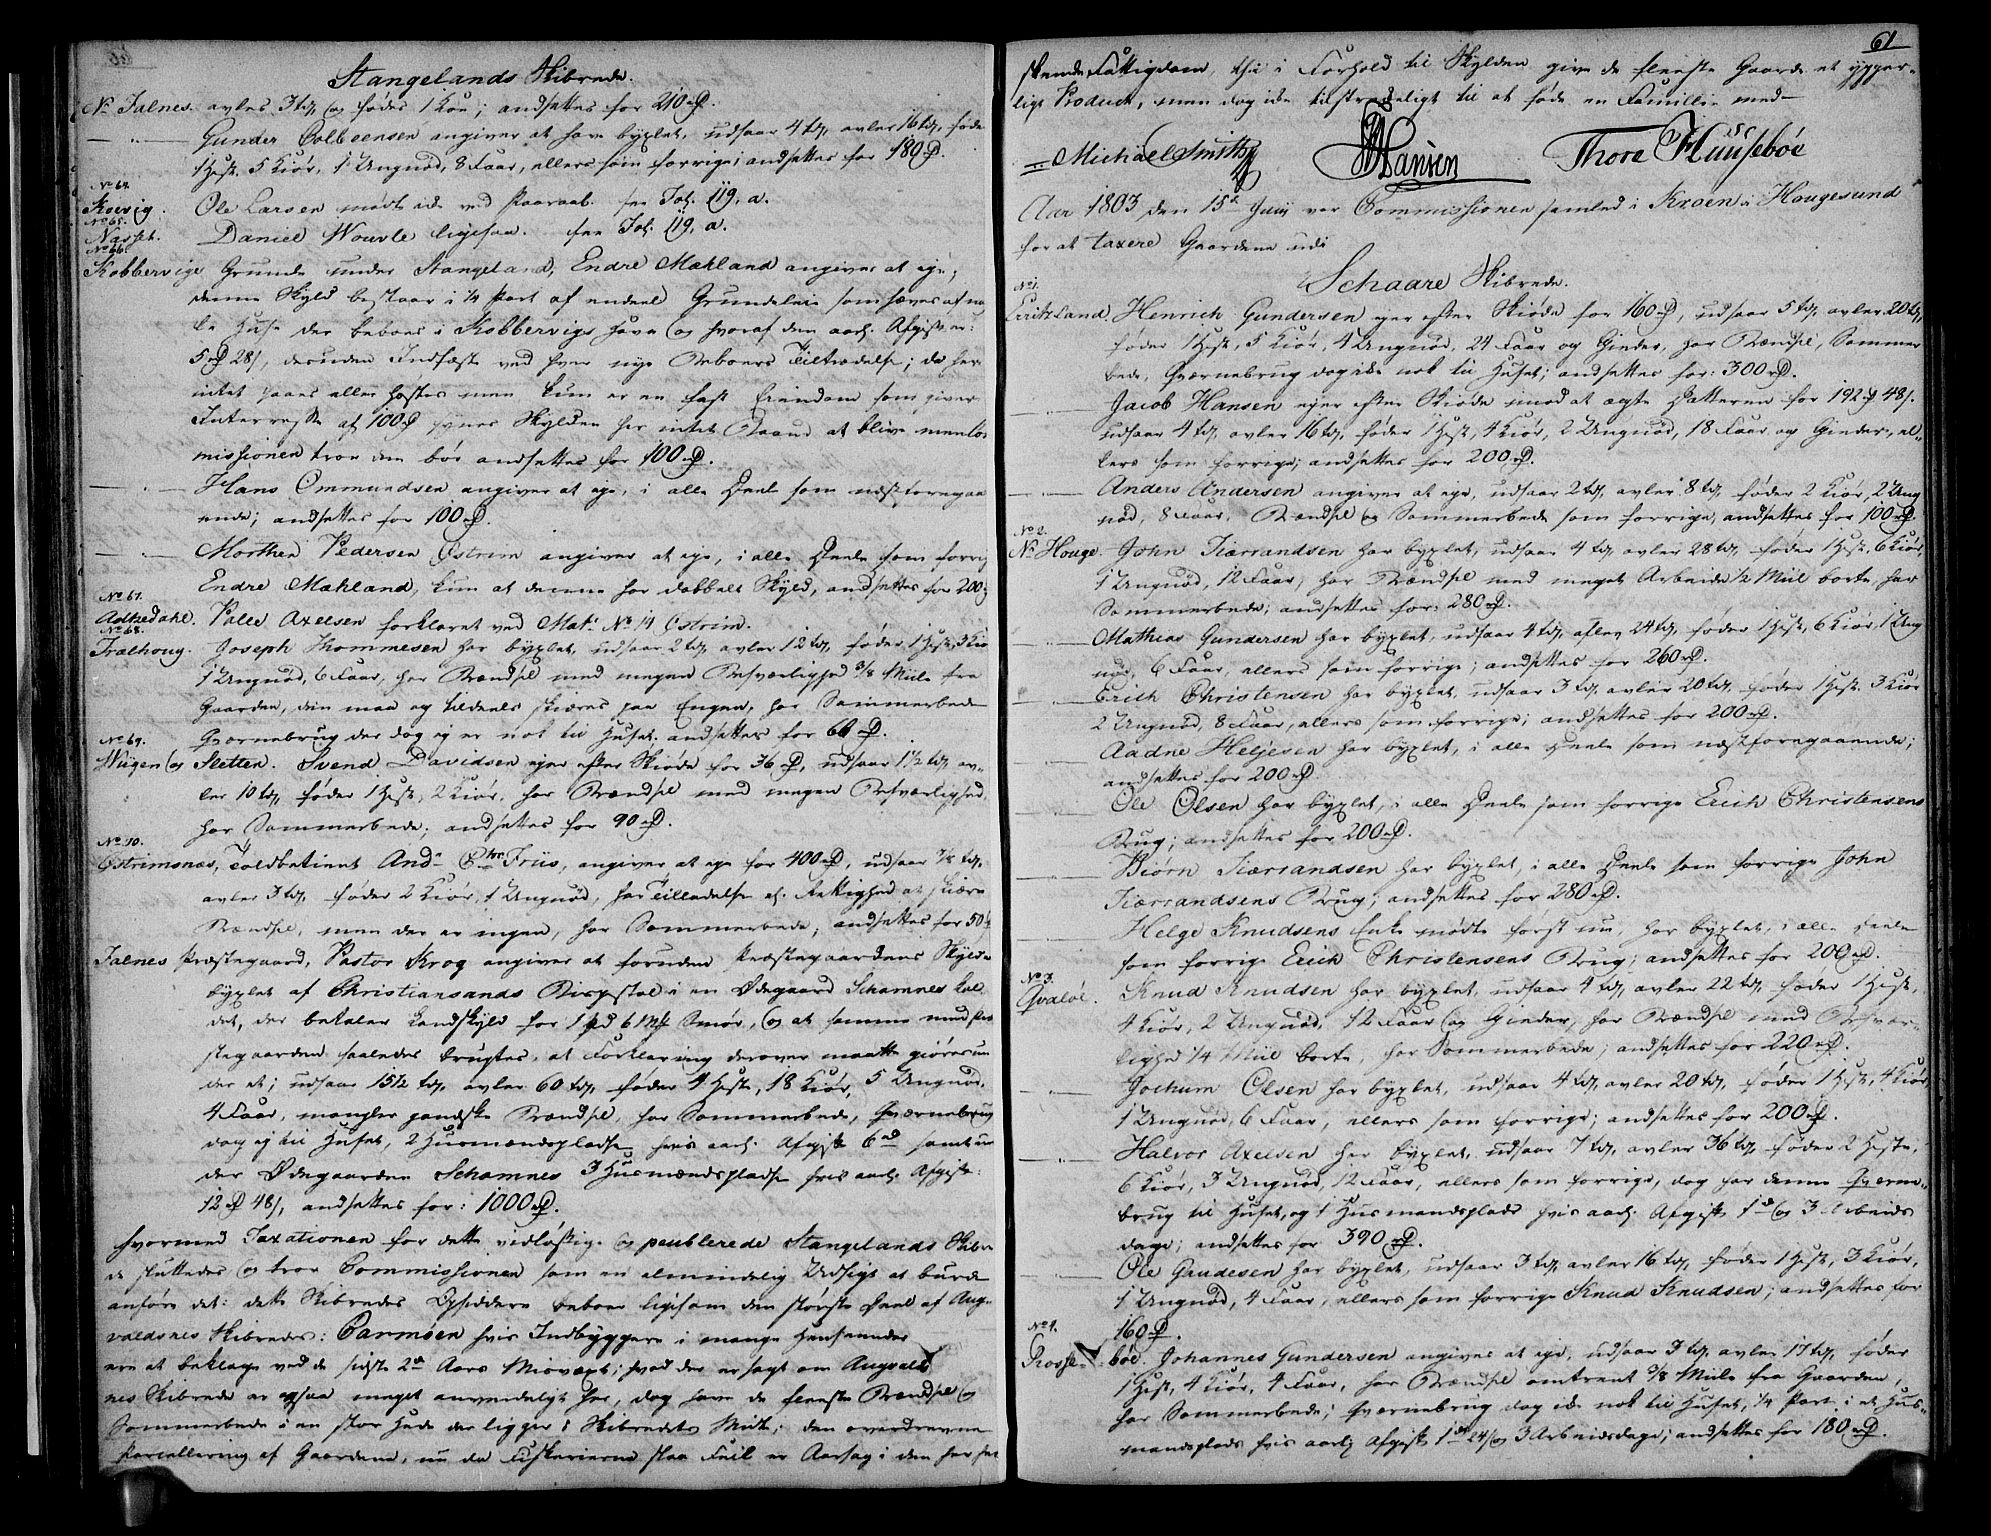 Stangelands Skibrede.
No Falnes. avles 3 tdr, og føder 1 Koe; andsettes for 210 rd.
Gunder Colbeensen angiver at have byxlet, udsaar 4 tdr, avler 16 tdr, føder
1 Hest, 5 Kiør, 1 Ungnød, 8 Faar, ellers som forrige; andsettes for 180 rd.
No 64.
Koevig. Ole Larsen mødte ei ved Paaraab. see Fol. 119. a.
No 65.
Næsset. Daniel Wouvle ligesaa. see Fol. 119. a.
No 66.
Kobbervigs Grunde under Stangeland, Endre Mækland angiver at eje;
denne Skyld bestaar i 1/4 Part af endeel Grundeleie som hæves af no-
le Huse der beboes i Kobbervigs Havn og hvoraf den aarl. Afgift er:
5 rd 28 s, desuden Indfæste ved hver nye Beboers Tiltrædelse; da her
intet saaes eller høstes men kun er en fast Eiendom som giver
Interresse af 100 rd synes Skylden her intet at blive men Com-
missionen troer den bør andsettes for 100 rd.
Hans Ommundsen angiver at eje, i alle Deele som næstforegaa
ende; andsettes for 100 rd.
Morthen Pedersen Østrim angiver at eje, i alle Deele som forrige
Endre Mækland, kun at denne har dobbelt Skyld, andsettes for 200
No 67.
Adthedahl. Palle Axelsen forklaret ved Mat. No 14 Østrim.
No 68.
Trælhoug. Joseph Thommesen har byxlet, udsaar 2 tdr, avler 12 tdr, føder 1 Hest, 3 Kiør
1 Ungnød, 6 Faar, har Brændsel med megen Besværlighed 3/8 Miile fra
Gaarden, den maa og tildeels skiæres paa Engen, har Sommerbede
Qværnebrug der dog ej er nok til Huset. andsettes for 60 rd.
No 69.
Wiigen og Sletten. Svend Davidsen ejer efter Skiøde for 36 rd, udsaar 1 1/2 tdr, av-
ler 10 tdr, føder 1 Hest, 2 Kiør, har Brændsel med megen Besværlighed,
har Sommerbede; andsettes for 90 rd.
No 70.
Østrimsnæs, Toldbetient And. Chr. Friis, angiver at eje for 400 rd, udsaar 7/8 td,
avler 3 tdr, føder 2 Kiør, 1 Ungnød, har Tilladelse el. Rettighed at skiære
Brændsel, men der er ingen, har Sommerbede; andsettes for 50
Falnes Præstegaard, Pastor Krog angiver at foruden Præstegaardens Skyld
byxlet af Christiansands Bispestol i en Ødegaard Schamnes kal-
det, der betaler Landskyld for 1 pd 6 Mk Smør, og at samme med Præ
stegaarden saaledes brugtes, at Forklaring derover maatte giøres un
der et; udsaar 15 1/2 tdr, avler 60 tdr, føder 4 Heste, 18 Kiør, 5 Ungnød,
4 Faar, mangler gandske Brændsel, har Sommerbede, Qværnebrug
dog ej til Huset, 2 Huusmændspladse hvis aarl. Afgift 6 rd samt un
der Ødegaarden Schamnes 3 Husmændspladse hvis aarl. Afgift
12 rd 48 s, andsettes for: 1000 rd.
Hvormed Taxationen for dette vidløftige og peuplerede Stangelands Skibre
de sluttedes og troer Commissionen som en almindelig Udsigt at burde
anføre det: dette Skibredes Opsiddere beboer ligesom den største Deel af Aug-
valdsnes Skibredes: Carmøen hvis Indbyggere i mange Henseender
ere at beklage ved de sidste 2de Aars Misvæxt; hvad der er sagt om Augvalds
nes Skibrede er ogsaa meget anvendeligt her, dog have de fleeste Brændsel og
Sommerbede i en stor Hede der ligger i Skibredets Midte; den overdrevne
Parcellering af Gaardene, nu da Fiskerierne slaa Feil er Aarsag i den her her
61
skende Fattigdom, thi i Forhold til Skylden give de fleeste Gaarde et ypper-
ligt Product, men dog ikke tilstrækkeligt til at føde en Famillie med
Michael Smith Hansen Thore Huusebøe
Aar 1803 den 15de Junij var Commissionen samled i Kroen i Hougesund
for at taxere Gaardene udi
Schaare Skibrede.
No 1.
Eritzland. Henrich Gundersen ejer efter Skiøde for 160 rd, udsaar 5 tdr, avler 20 tdr,
føder 1 Hest, 5 Kiør, 4 Ungnød, 24 Faar og Gieder, har Brændsel, Sommer
bede, Qværnebrug dog ikke nok til Huset; andsettes for: 300 rd.
Jacob Hansen ejer efter Skiøde mod at ægte Datteren for 192 rd 48 s.
udsaar 4 tdr, avler 16 tdr, føder 1 Hest, 4 Kiør, 2 Ungnød, 18 Faar og Gieder, el-
lers som forrige; andsettes for 200 rd.
Anders Andersen angiver at eje, udsaar 2 tdr, avler 8 tdr, føder 2 Kiør, 2 Ung
nød, 8 Faar, Brændsel og Sommerbede som forrige, andsettes for 100 rd.
No 2.
No Houge. John Tiærrandsen har byxlet, udsaar 4 tdr, avler 28 tdr, føder 1 Hest, 6 Kiør
1 Ungnød, 12 Faar, har Brændsel med meget Arbeide 1/2 Miil borte, har
Sommerbede; andsettes for: 280 rd.
Mathias Gundersen har byxlet, udsaar 4 tdr, avler 24 tdr, føder 1 Hest, 6 Kiør, 1 Ung
nød, 6 Faar, ellers som forrige; andsettes for 260 rd.
Erich Christensen har byxlet, udsaar 3 tdr, avler 20 tdr, føder 1 Hest, 3 Kiør
2 Ungnød, 8 Faar, ellers som forrige; andsettes for 200 rd.
Aadne Heljesen har byxlet, i alle Deele som næstforegaaende;
andsettes for 200 rd.
Ole Olsen har byxlet, i alle Deele som forrige Erich Christensens
Brug; andsettes for 200 rd.
Biørn Tiærrandsen har byxlet, i alle Deele som forrige John
Tiærrandsens Brug; andsettes for 280 rd.
Helge Knudsens Enke mødte først nu, har byxlet, i alle Deele
som forrige Erich Christensens Brug; andsettes for 200 rd.
No 3.
Qvaløe. Knud Knudsen har byxlet, udsaar 4 tdr, avler 22 tdr, føder 1 Hest,
4 Kiør, 2 Ungnød, 12 Faar og Gieder, har Brændsel med Besvær-
lighed 1/4 Miil borte, har Sommerbede; andsettes for 220 rd.
Jochum Olsen har byxlet, udsaar 4 tdr, avler 20 tdr, føder 1 Hest, 4 Kiør
1 Ungnød, 6 Faar, ellers som forrige; andsettes for 200 rd.
Halvor Axelsen har byxlet, udsaar 7 tdr, avler 36 tdr, føder 2 Heste,
6 Kiør, 3 Ungnød, 12 Faar, ellers som forrige, dog har denne Qværne-
brug til Huset, og 1 Husmandsplads hvis aarl. Afgift 1 rd og 3 Arbeids
dage; andsettes for 390 rd.
Ole Gaudesen har byxlet, udsaar 3 tdr, avler 16 tdr, føder 1 Hest, 3 Kiør,
1 Ungnød, 4 Faar, ellers som forrige Knud Knudsen; andsettes for
160 rd.
No 4.
Rossebøe. Johannes Gundersen angiver at eje, udsaar 3 tdr, avler 17 tdr, føder
1 Hest, 4 Kiør, 4 Faar, har Brændsel omtrent 3/8 Miile fra Gaarden,
har Sommerbede; Qværnebrug dog ikke nok til Huset, 1/4 Part i et Hus-
mandsplads hvis aarlig Afgift 1 rd 24 s og 3 Arbeidsdage; andsettes for 180 rd.